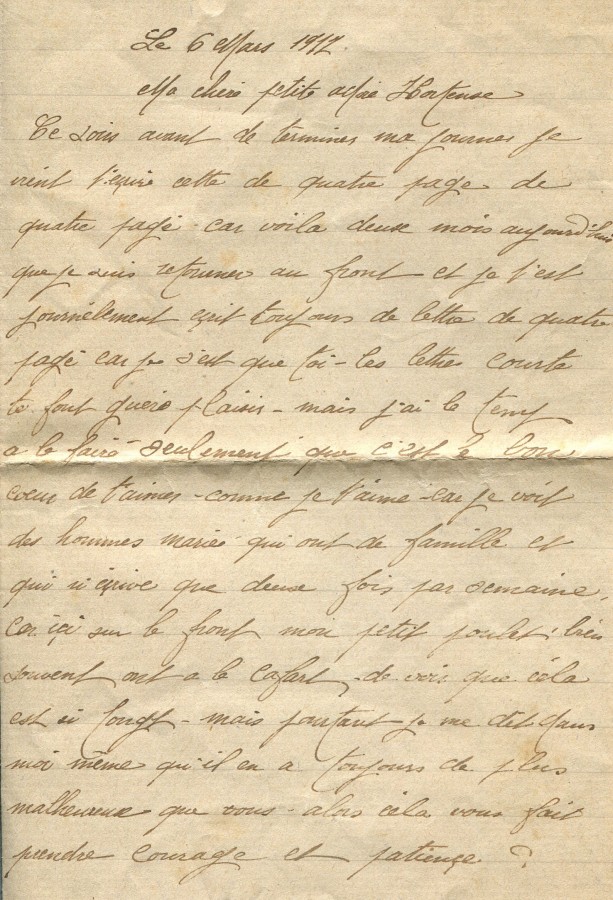 Le 6 Mars 1917.
Ma chere petite adoré Hortense
Ce soirs avant de terminer ma journer je
vient t'ecrire cette de quatre page de
quatre page car voila deuse mois aujourd'hui
que je suis retouner au front et je t'est
journélement ecrit toujours de lettre de quatre
page car je s'est que toi - les lettre courte
te font guere plaisir - mais j'ai le temp
a le faire seulement que c'est le bon
coeur de t'aimer - comme je t'aime - car je voit
des hommes marié qui ont de famille et
qui n'ecrive que deuse fois par semaine.
Car içi sur le front mon petit poulet! bien
souvent ont a le cafart - de voir que céla
est si longt - mais pourtant je me dit dans
moi même qu'il en a toujours de plus
malheureux que vous - alors céla vous fait
prendre courage et patiençe ?